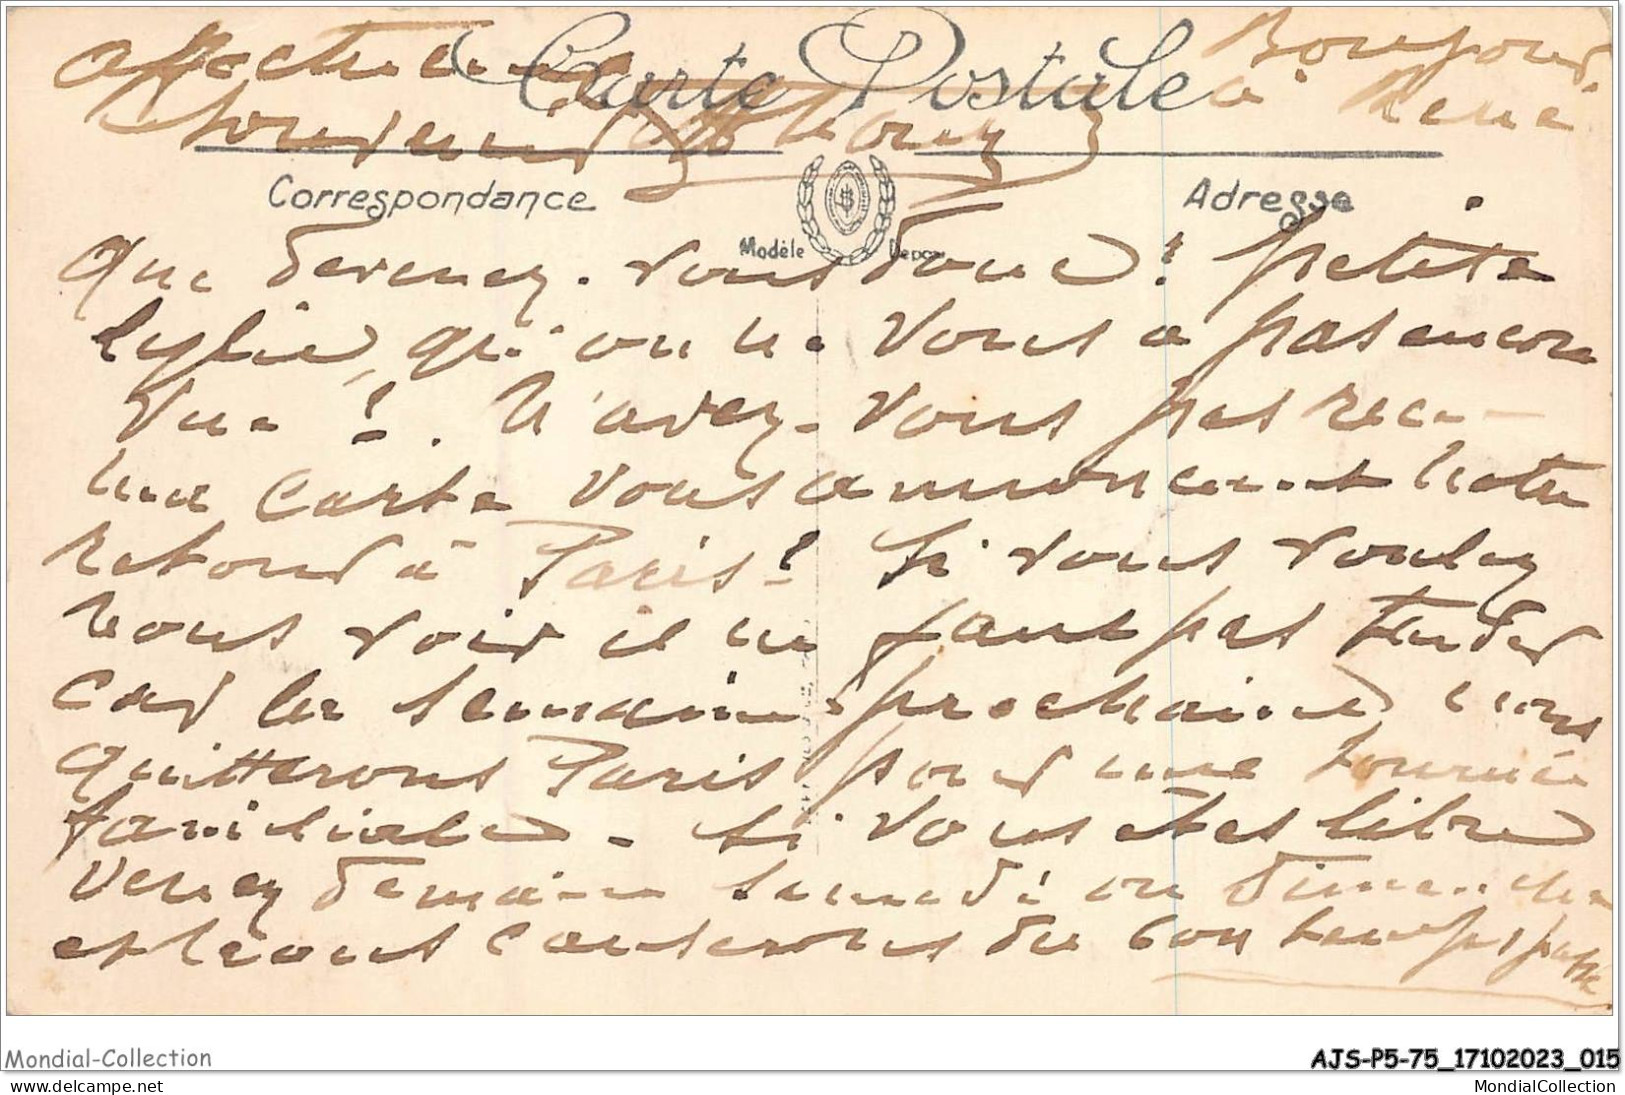 Carte Postale
affectueux Bonjour
Souvenir à René
Correspondance Adresse
Modèle Déposé
Que devenez-vous donc! petite
Lylie, qu'on ne vous a pas encore
vue!. N'avez-vous pas reçu
une carte vous annoncant notre
retour à Paris? Si vous voulez
nous voir il ne faut pas tarder
car la semaine prochaine, nous
quitterons Paris pour une tournée
familiale. Si vous êtes libre
venez demain samedi ou dimanche
et nous causerons du bon temps passé
Mondial-Collection
AJS-P5-75_17102023_015
www.delcampe.net
MondialCollection